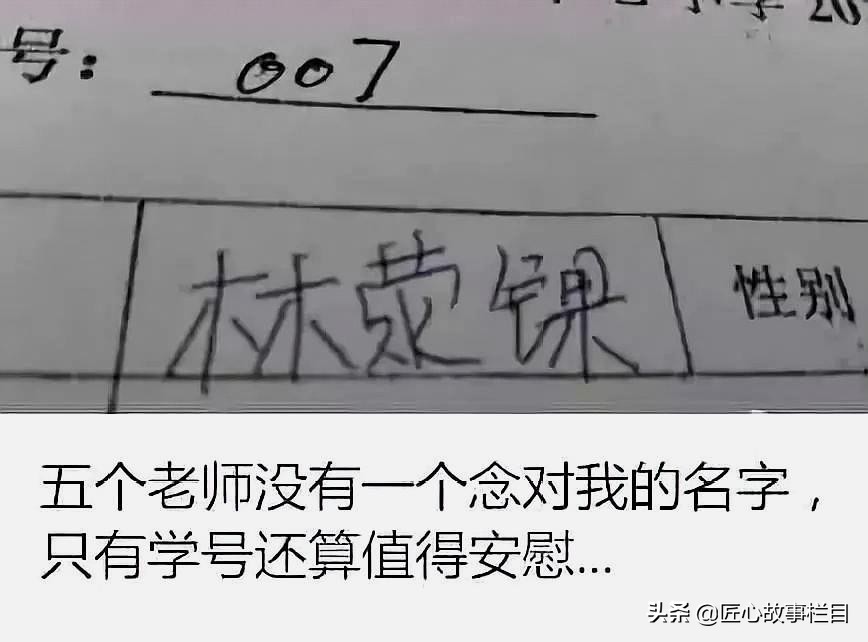 号: 007
林荥锞 性别
五个老师没有一个念对我的名字，
只有学号还算值得安慰...
头条 @匠心故事栏目